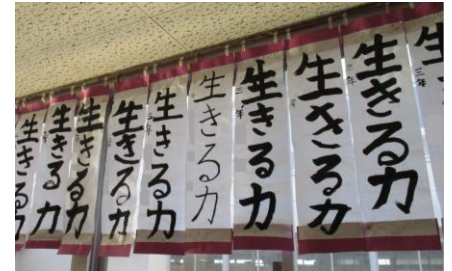 生
三年
生きる力
生きる力
生きる力
三年
生きる力
生きる力
三年
生きる力
生きる力
生きる力
生きる力